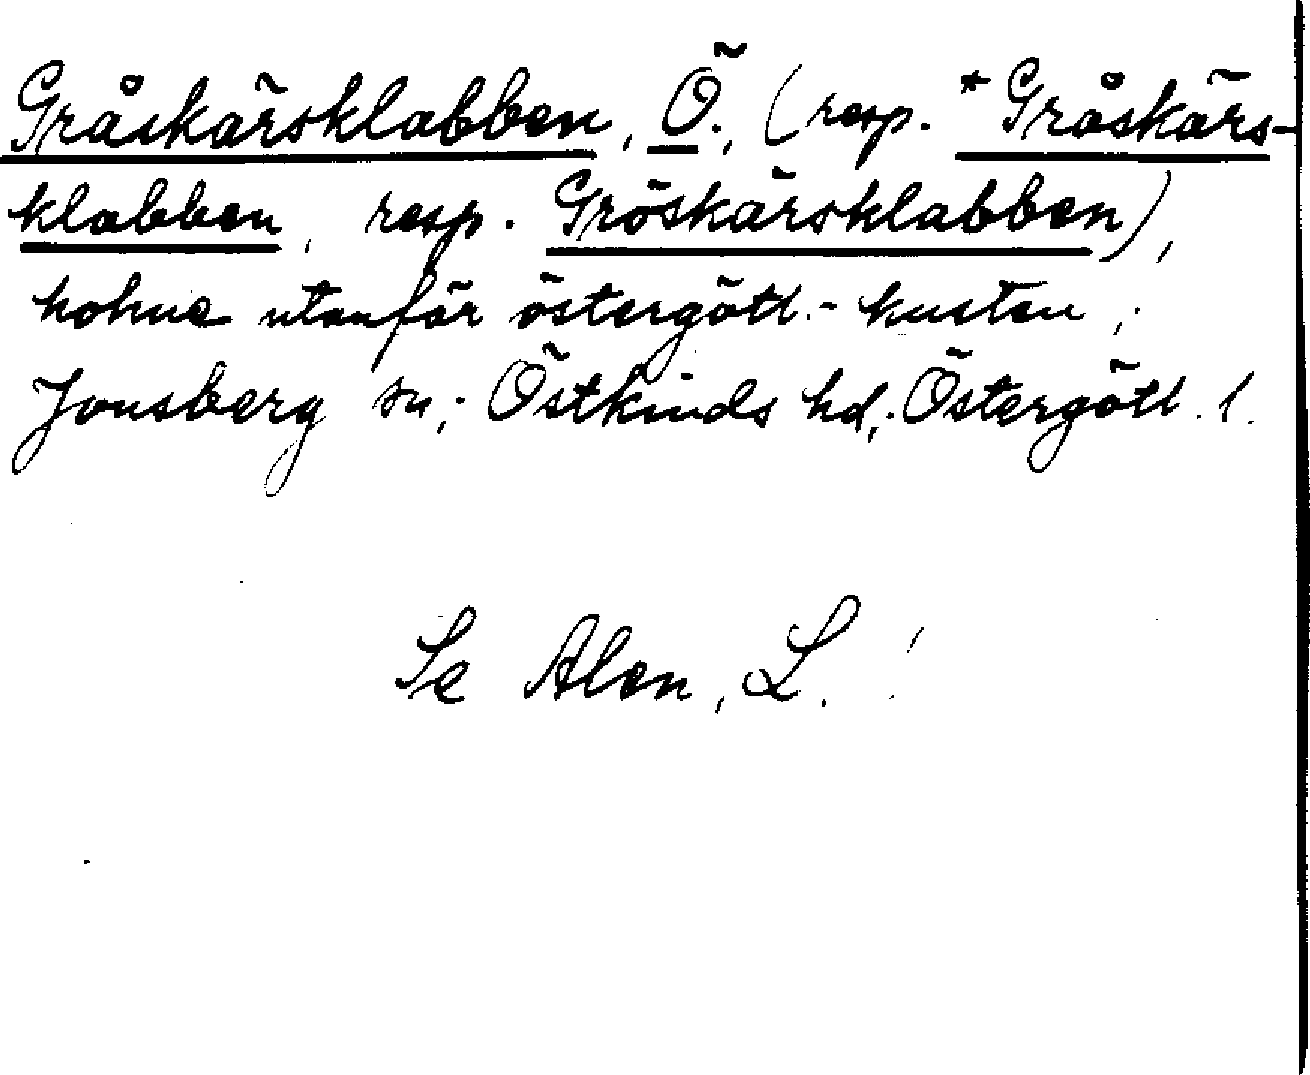 Gråskärsklabben, Ö., (resp. *Gråskärs-
klabben, resp. Gröskärsklabben),
holme utanför östergötl.-kusten;
Jonsberg sn; Östkinds hd; Östergötl. l.
Se Alen, L.!